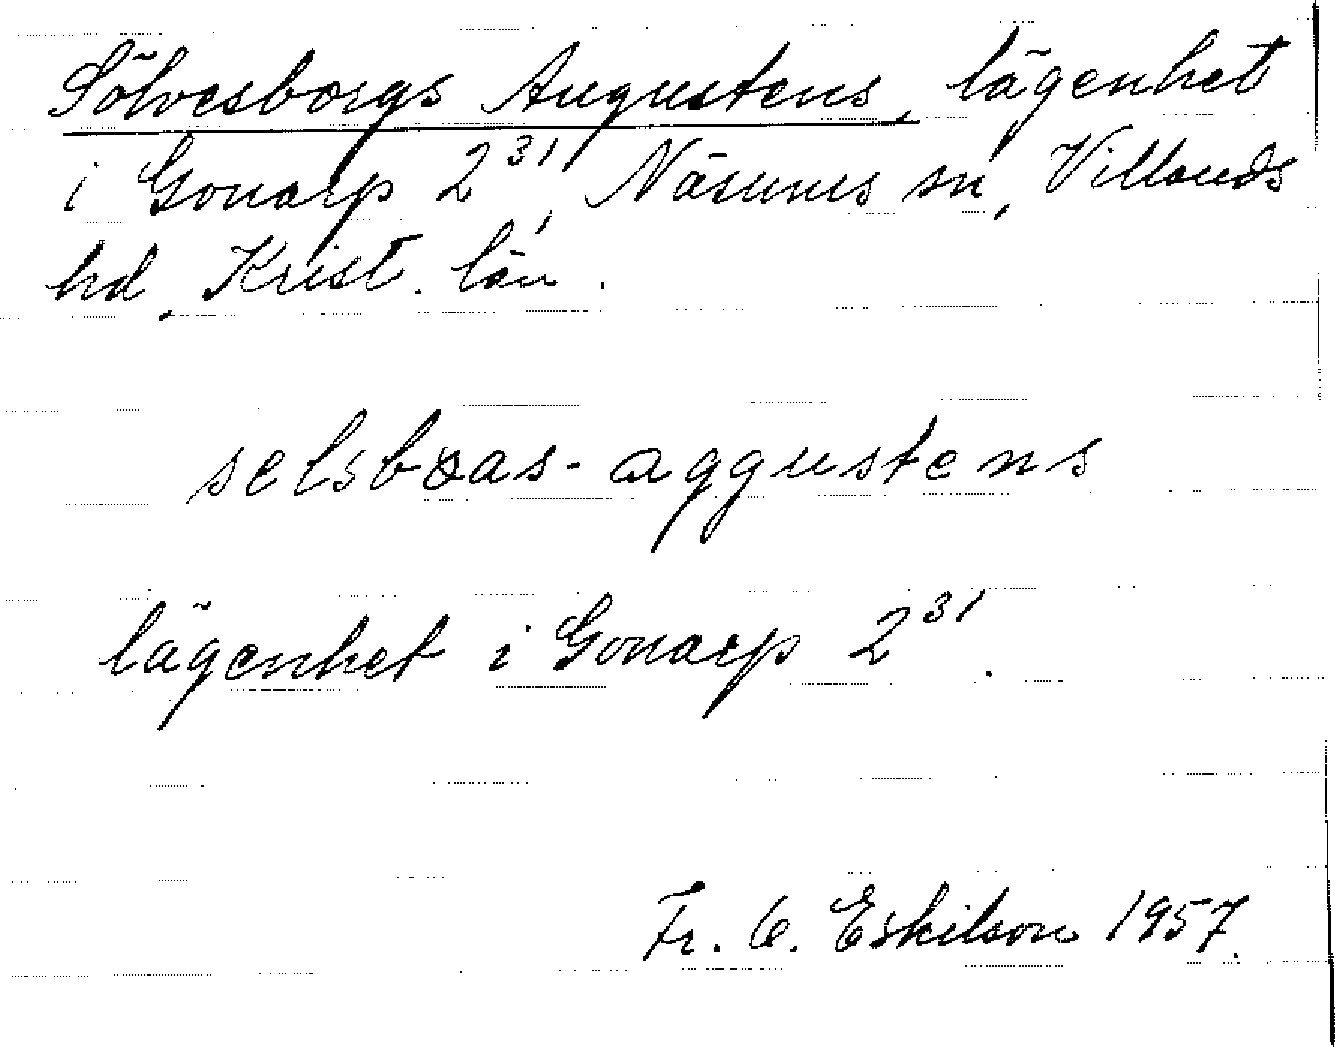 Sölvesborgs Augustens, lägenhet
i Gonarp 2³¹, Näsums sn, Villands
hd, Krist. län.
selsbɷas-aggustens
lägenhet i Gonarp 2³¹.
Fr. E. Eskilson 1957.